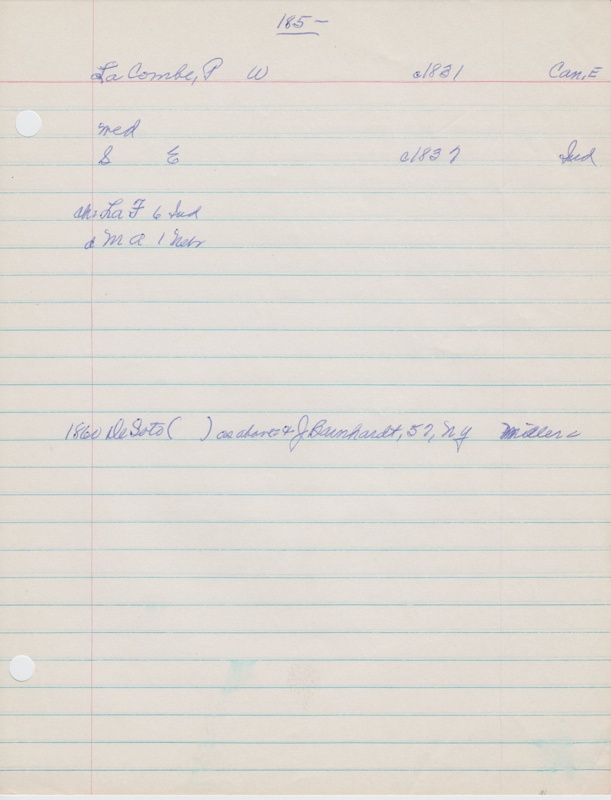 185-
La Combe, P W c1831 Can, E
med
S E c1837 Ind
ch: La F 6 Ind
& M A 1 Nebr
1860 De Soto ( ) as above & J Barnhardt, 57, NY Miller